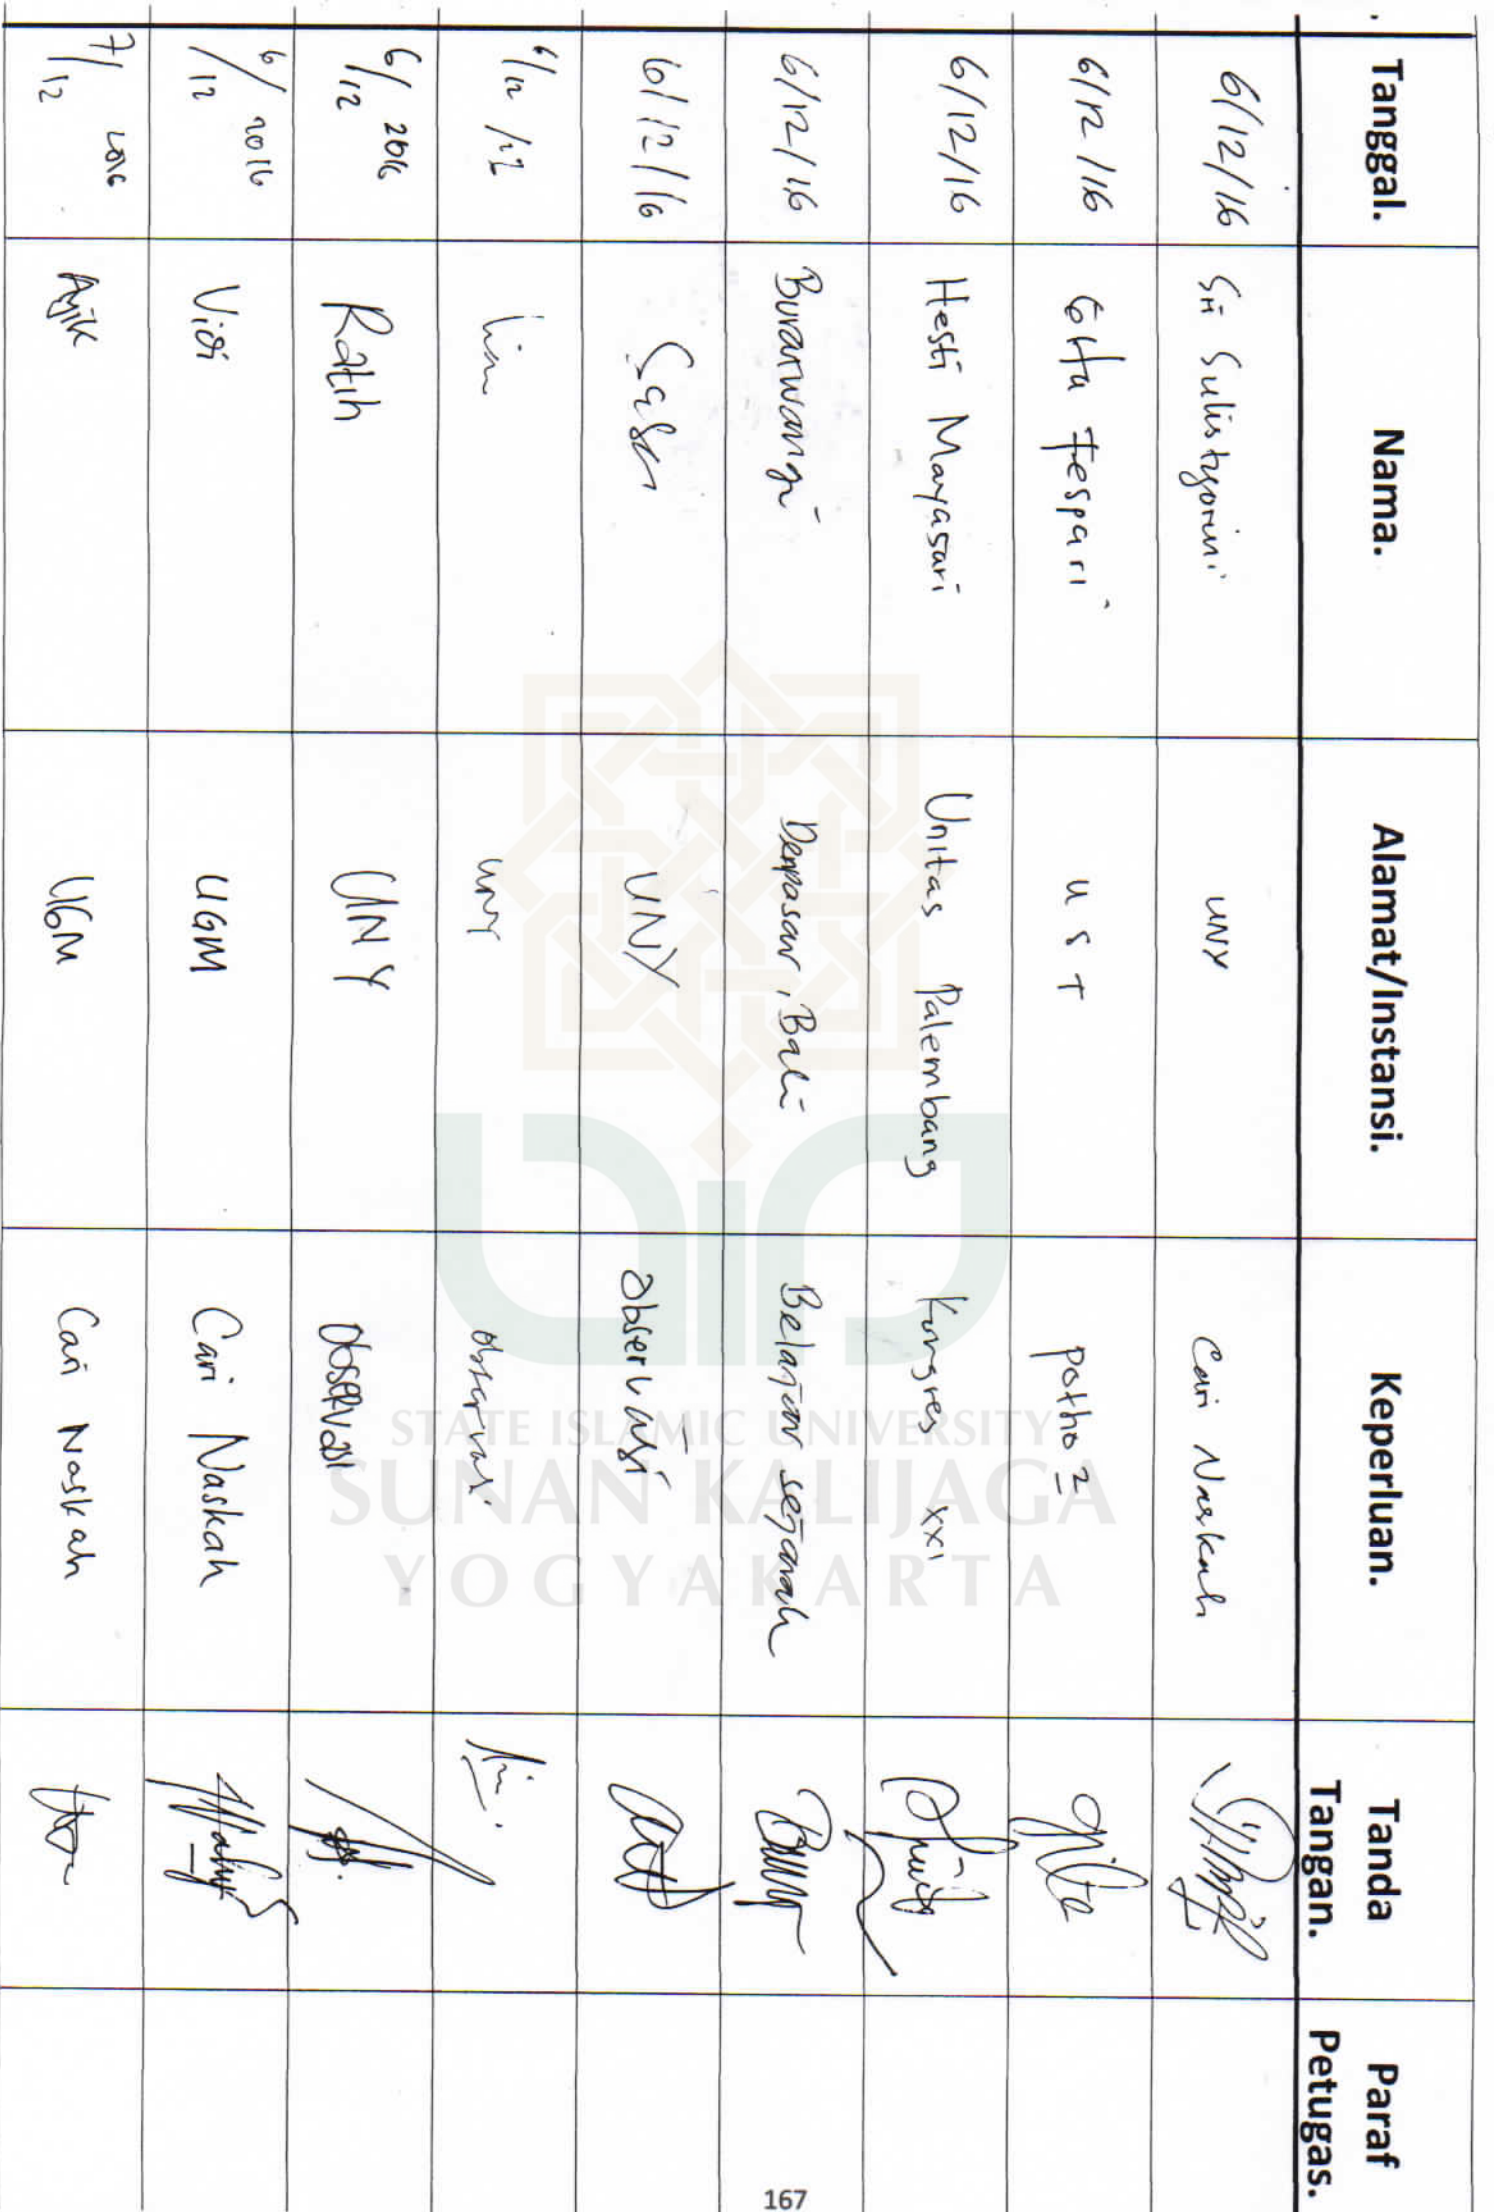 Tanggal. Nama. Alamat/Instansi. Keperluan. Tanda Tangan. Paraf Petugas.
6/12/16 Sri Sulistyorini UNY Cari Naskah
6/12/16 Gita Fespari UST potho 2
6/12/16 Hesti Mayasari Unitas Palembang Kongres XXI
6/12/16 Buranwangi Denpasar, Bali Belajar sejarah
6/12/16 UNY Observasi
6/12 UNY Observasi
6/12 2016 Ratih UNY Observasi
6/12 2016 Vidi UGM Cari Naskah
7/12 2016 Anjik UGM Cari Naskah
STATE ISLAMIC UNIVERSITY
SUNAN KALIJAGA
YOGYAKARTA
167